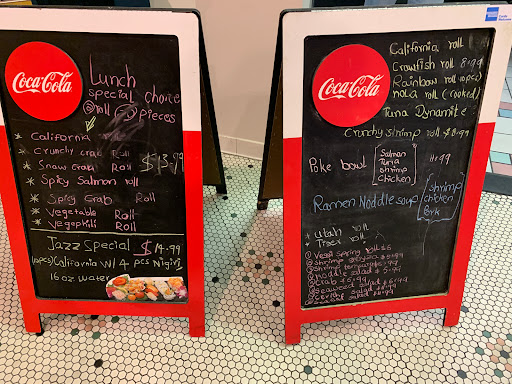 Coca-Cola
Lunch
special choice
roll pieces
* California roll
* Crunchy crab Roll
* Snow crab Roll $13.99
* Spicy Salmon roll
* Spicy Crab Roll
* Vegetable Roll
* Vegephili Roll
Jazz Special $14.99
California w/ 4 pcs Nigiri
16 oz water
Coca-Cola
California roll
Crawfish roll 8.99
Rainbow roll
nola roll (cooked)
Tuna Dynamite
Crunchy shrimp roll $8.99
Poke bowl
Salmon
Tuna
shrimp
Chicken
11.99
Ramen Noddle soup
shrimp
chicken
Pork
* Utah roll
* Tiger roll
Vegi spring roll $6
shrimp
shrimp
noodle salad
crab
seaweed salad
salad